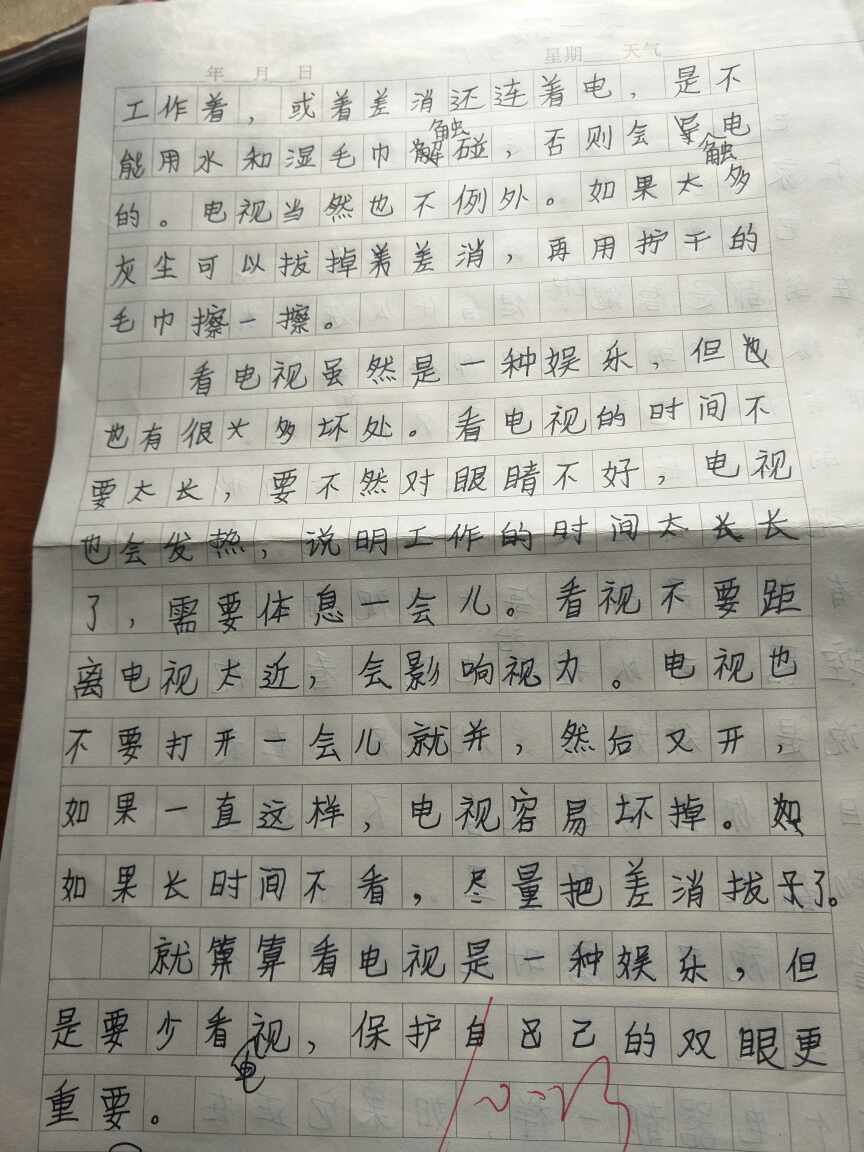 年 月 日 星期 天气
工作着，或着差消还连着电，是不
能用水和湿毛巾触碰，否则会触电
的。电视当然也不例外。如果太多
灰尘可以拔掉差消，再用拧干的
毛巾擦一擦。
看电视虽然是一种娱乐，但
也有很大多坏处。看电视的时间不
要太长，要不然对眼睛不好，电视
也会发热，说明工作的时间太长
了，需要体息一会儿。看视不要距
离电视太近，会影响视力。电视也
不要打开一会儿就并，然后又开，
如果一直这样，电视容易坏掉。
如果长时间不看，尽量把差消拔了。
就算看电视是一种娱乐，但
是要少看电视，保护自己的双眼更
重要。